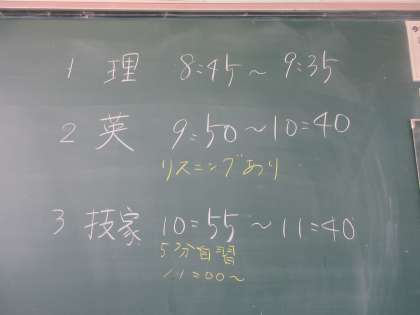 1 理 8:45～9:35
2 英 9:50～10:40
リスニングあり
3 技家 10:55～11:40
5分自習
11:00～